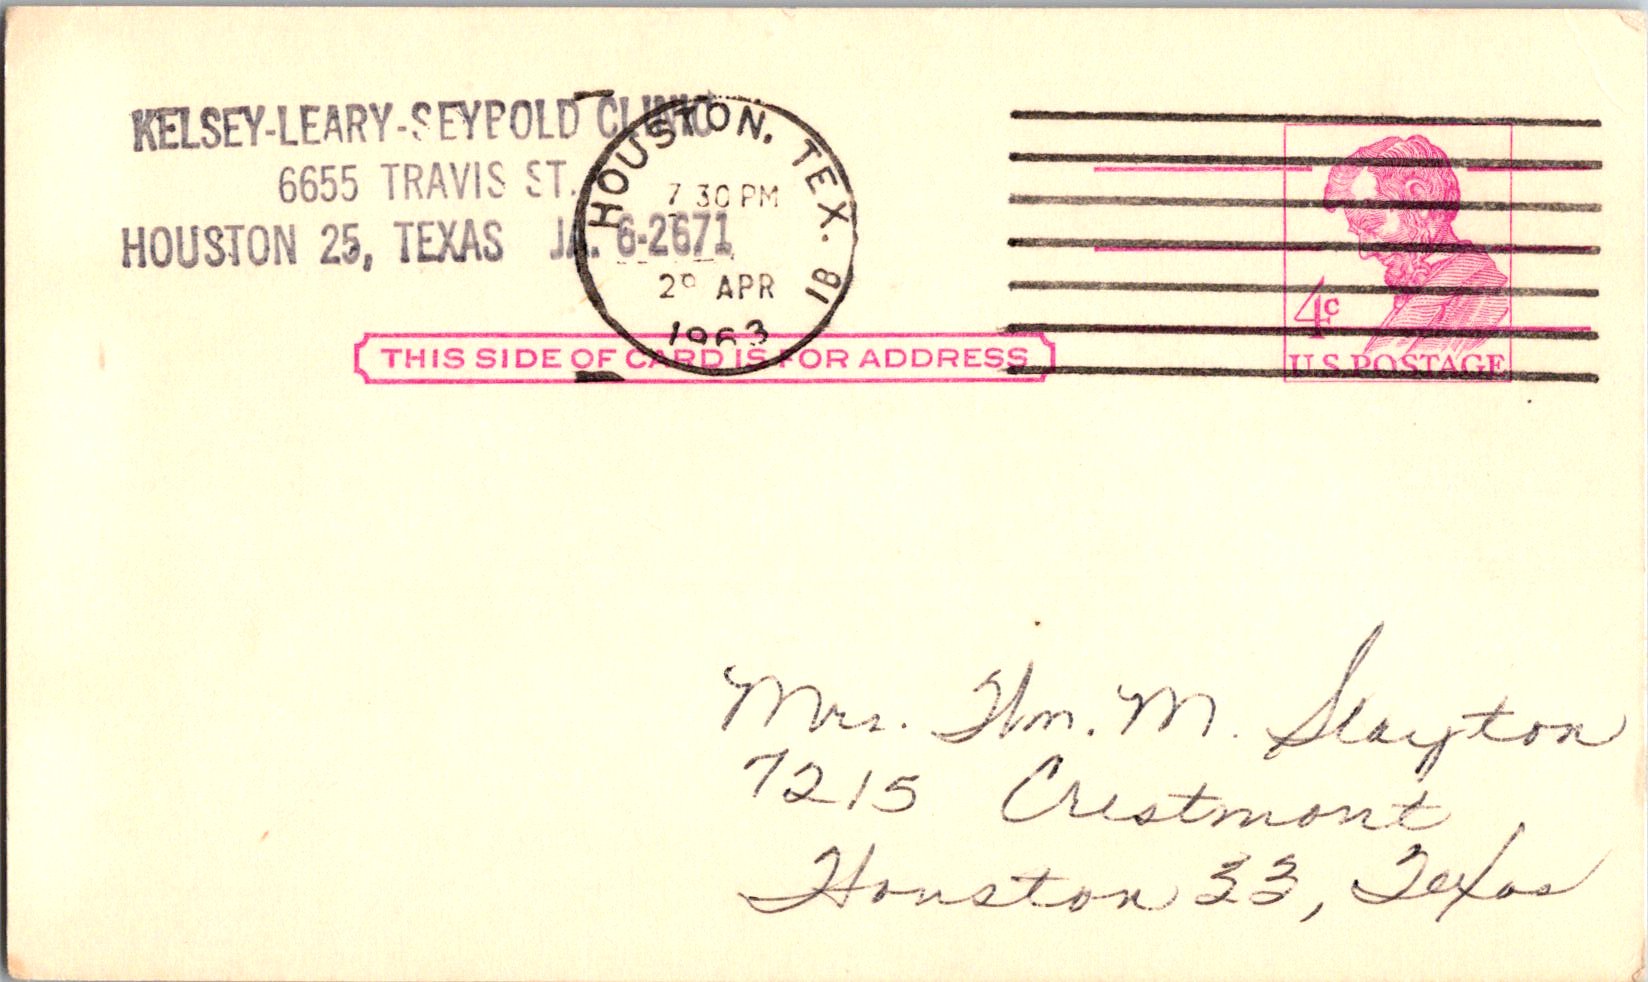 KELSEY-LEARY-SEYBOLD CLINIC
6655 TRAVIS ST.
HOUSTON 25, TEXAS JA. 6-2671
HOUSTON, TEX. 1B
7 30 PM
29 APR
1963
4c
U.S. POSTAGE
THIS SIDE OF CARD IS FOR ADDRESS
Mrs. Wm. M. Slayton
7215 Crestmont
Houston 33, Texas